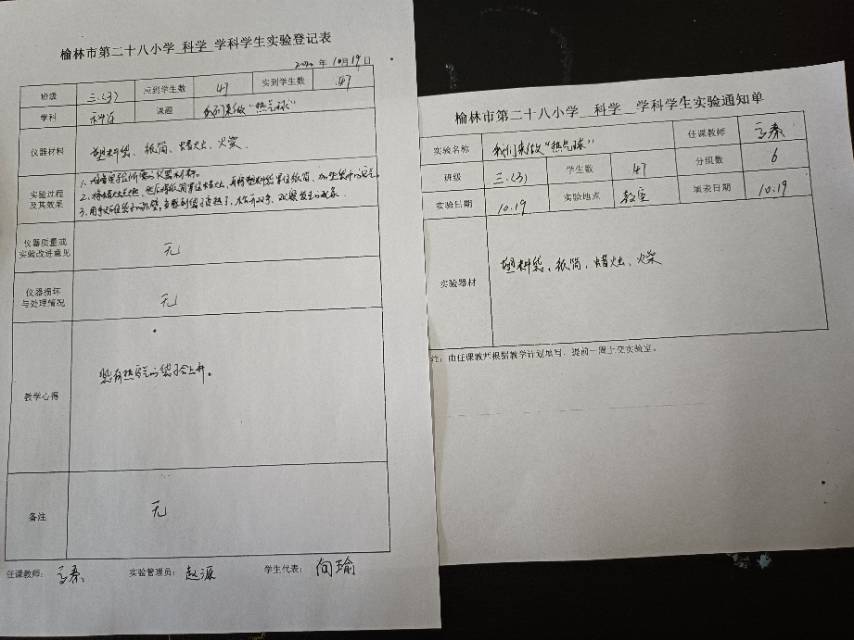 榆林市第二十八小学 科学 学科学生实验登记表
2020 年 10月19日
班级 三.(3) 应到学生数 47 实到学生数 47
学科 科学 课题 我们来做“热气球”
仪器材料 塑料袋、纸筒、蜡烛、火柴
实验过程
及其效果
2.将蜡烛点燃,然后将纸筒罩住蜡烛,再将塑料袋罩住纸筒
仪器质量或
实验改进意见 无
仪器损坏
与处理情况 无
教学心得 装有热空气的袋子会上升。
备注 无
任课教师: 实验管理员: 赵源 学生代表: 闫瑜
榆林市第二十八小学 科学 学科学生实验通知单
实验名称 我们来做“热气球” 任课教师
班级 三.(3) 学生数 47 分组数 6
实验日期 10.19 实验地点 教室 填表日期 10.19
实验器材 塑料袋、纸筒、蜡烛、火柴
注:由任课教师根据教学计划填写,提前一周上交实验室。